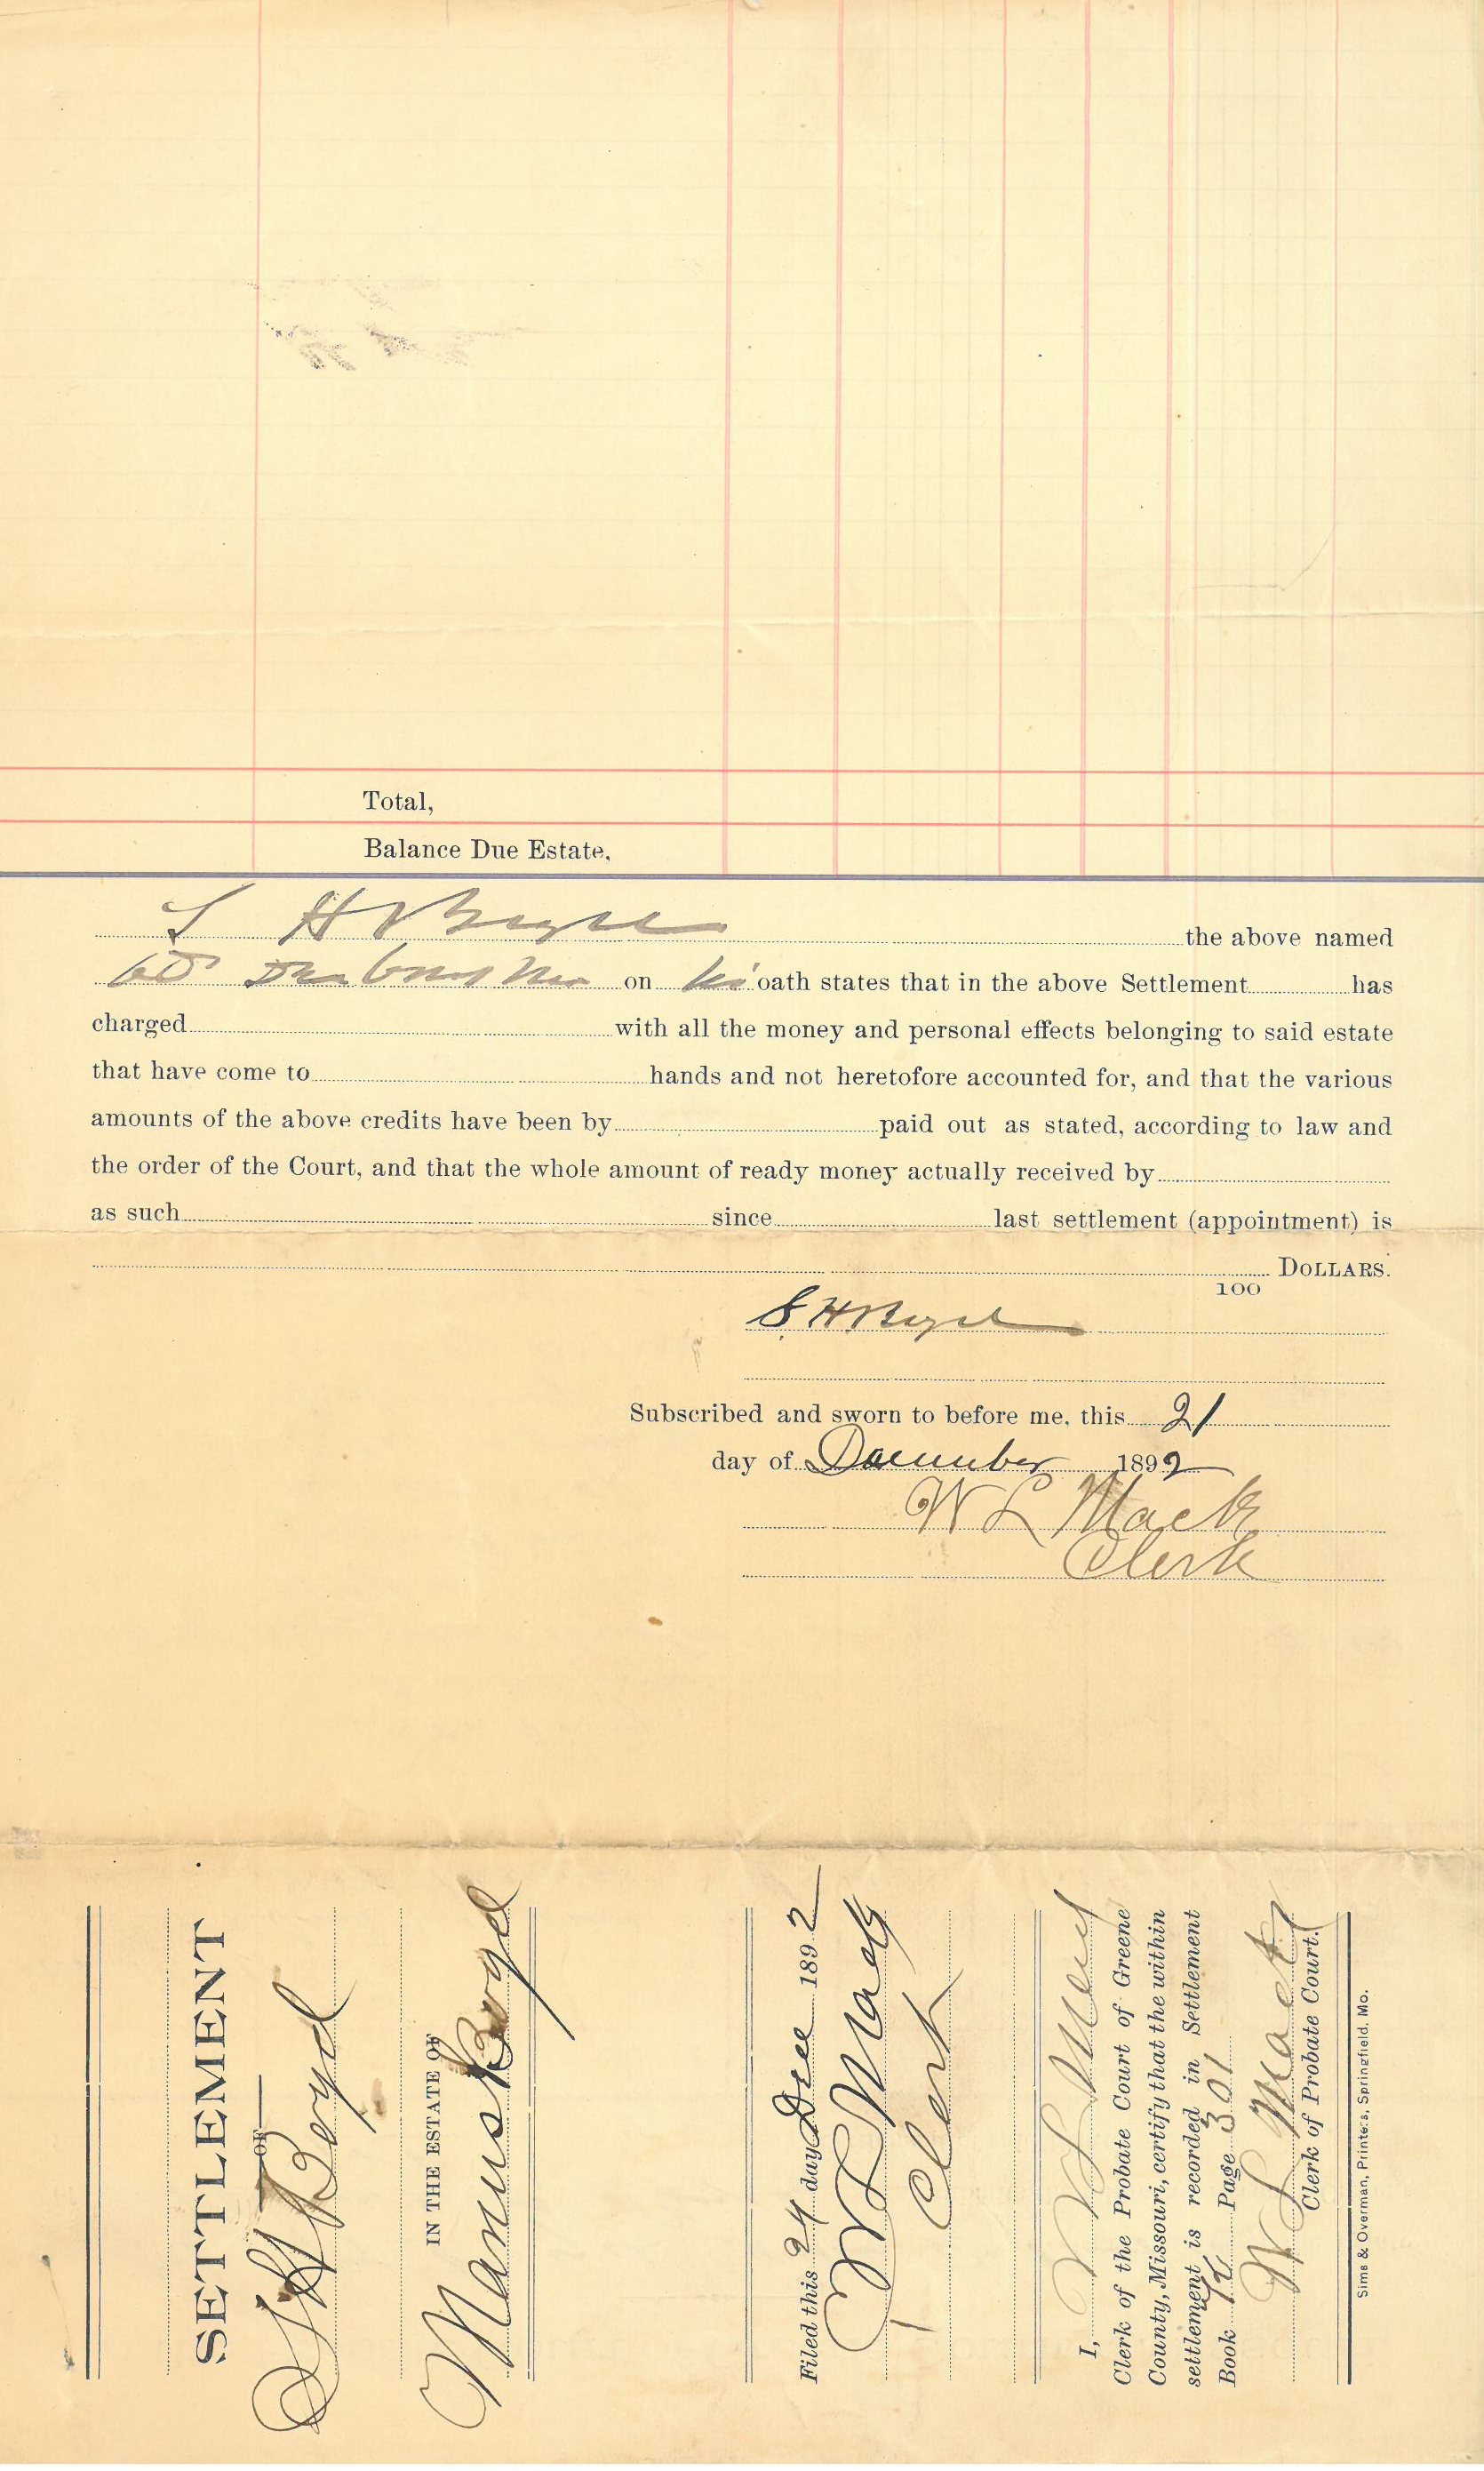 Total,
Balance Due Estate.
S H Boyd the above named
on his oath states that in the above Settlement has
charged with all the money and personal effects belonging to said estate
that have come to hands and not heretofore accounted for, and that the various
amounts of the above credits have been by paid out as stated, according to law and
the order of the Court, and that the whole amount of ready money actually received by
as such since last settlement (appointment) is
DOLLARS.
100
S. H. Boyd
Subscribed and sworn to before me, this 21
day of December 1892
W L Mack
Clerk
SETTLEMENT
OF
S H Boyd
IN THE ESTATE OF
Manus Boyd
Filed this 24 day Dec 1892
W L Mack
Clerk
I, W L Mack
Clerk of the Probate Court of Greene
County, Missouri, certify that the within
settlement is recorded in Settlement
Book Page 301
W L Mack
Clerk of Probate Court.
Sims & Overman, Printers, Springfield, Mo.